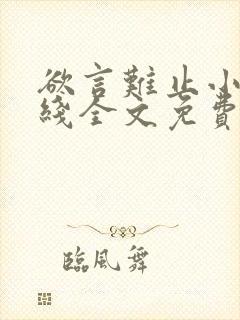 欲言難止小
綫全文免費
臨風舞